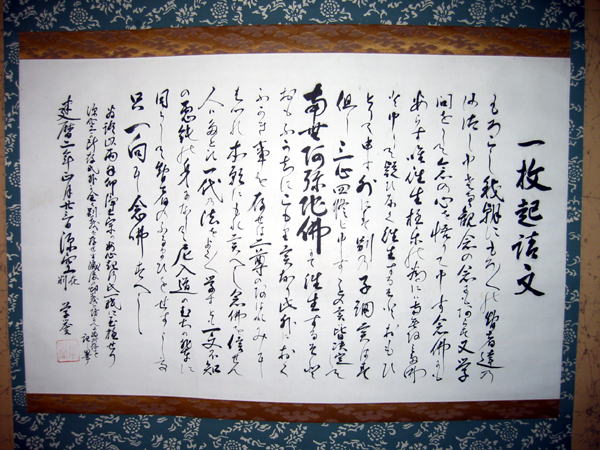 一枚起請文
もろこし我朝にもろ〱の智者達の
沙汰し申さるゝ觀念の念にもあらす又学
問をして念の心を悟て申す念佛にも
あらす唯往生極楽の為には南無阿弥陀佛
と申て疑ひなく往生するそとおもひ
とりて申す外には別の子細候はす
但し三心四修と申す事の候は皆決定して
南無阿弥陀佛にて往生するそと
おもふうちにこもり候なり此外におく
ふかき事を存せは二尊のあはれみに
はつれ本願にもれ候へし念佛を信せん
人はたとひ一代の法をよく〱学すとも一文不知
の愚鈍の身になして尼入道の無智の輩に
同して智者のふるまひをせすして
只一向に念佛すへし
為證以両手印浄土宗安心起行此一紙に至極せり
源空所存此外全別義を存せす滅後邪義を防んか為に所存を記畢
建暦二年正月廿三日 源空 在判